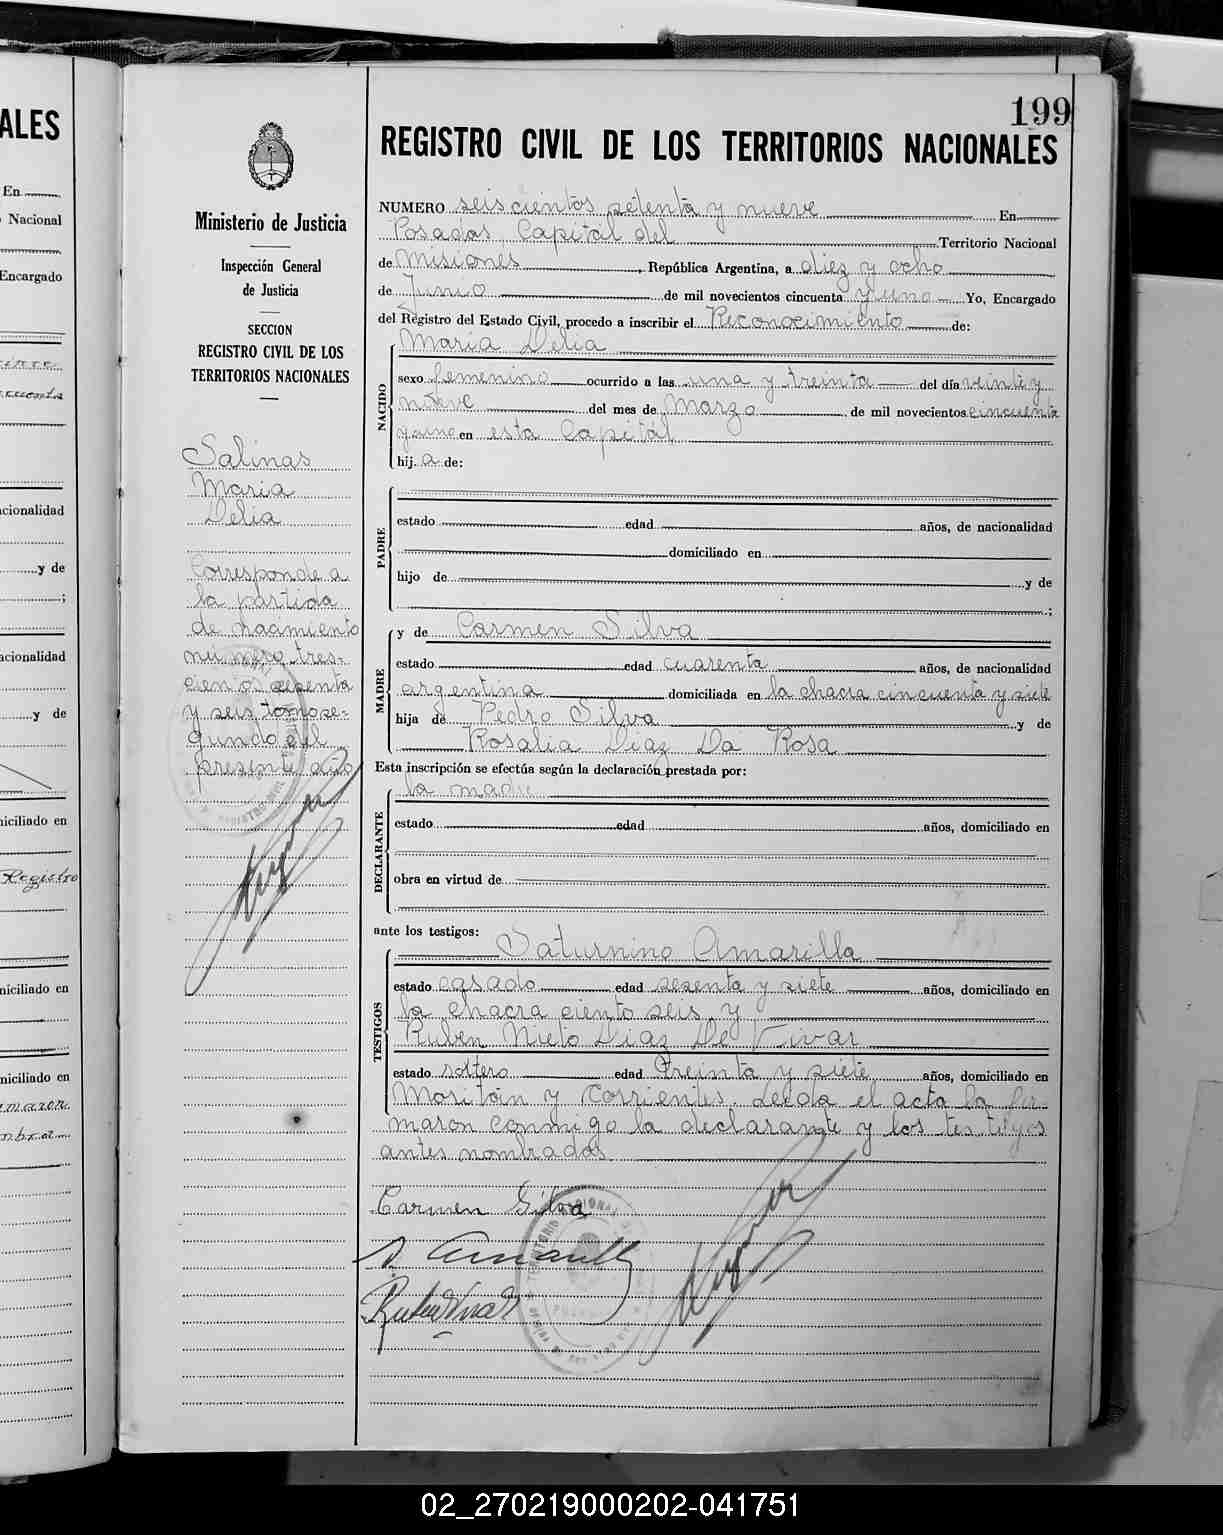 199
REGISTRO CIVIL DE LOS TERRITORIOS NACIONALES
Ministerio de Justicia
Inspección General
de Justicia
SECCION
REGISTRO CIVIL DE LOS
TERRITORIOS NACIONALES
Salinas
Maria
Delia
Corresponde a
la partida
de nacimiento
número tres-
cientos sesenta
y seis tomo se-
gundo del
presente año
NUMERO seiscientos setenta y nueve En
Posadas Capital del Territorio Nacional
de Misiones, República Argentina, a diez y ocho
de Junio de mil novecientos cincuenta y uno Yo, Encargado
del Registro del Estado Civil, procedo a inscribir el Reconocimiento de:
NACIDO
Maria Delia
sexo femenino ocurrido a las una y treinta del día veinte y
nueve del mes de Marzo de mil novecientos cincuenta
y uno en esta Capital
hij a de:
PADRE
estado edad años, de nacionalidad
domiciliado en
hijo de y de
;
MADRE
y de Carmen Silva
estado edad cuarenta años, de nacionalidad
argentina domiciliada en la chacra cincuenta y siete
hija de Pedro Silva y de
Rosalia Diaz Da Rosa
Esta inscripción se efectúa según la declaración prestada por:
DECLARANTE
la madre
estado edad años, domiciliado en
obra en virtud de
ante los testigos:
TESTIGOS
Saturnino Amarilla
estado casado edad sesenta y siete años, domiciliado en
la chacra ciento seis y
Ruben Nieto Diaz De Vivar
estado soltero edad treinta y siete años, domiciliado en
Moritán y Corrientes. Leida el acta la fir-
maron conmigo la declarante y los testigos
antes nombrados
Carmen Silva
ALES
En
Nacional
Encargado
acionalidad
y de
;
acionalidad
y de
niciliado en
Registro
niciliado en
niciliado en
maron
mbra
02_270219000202-041751